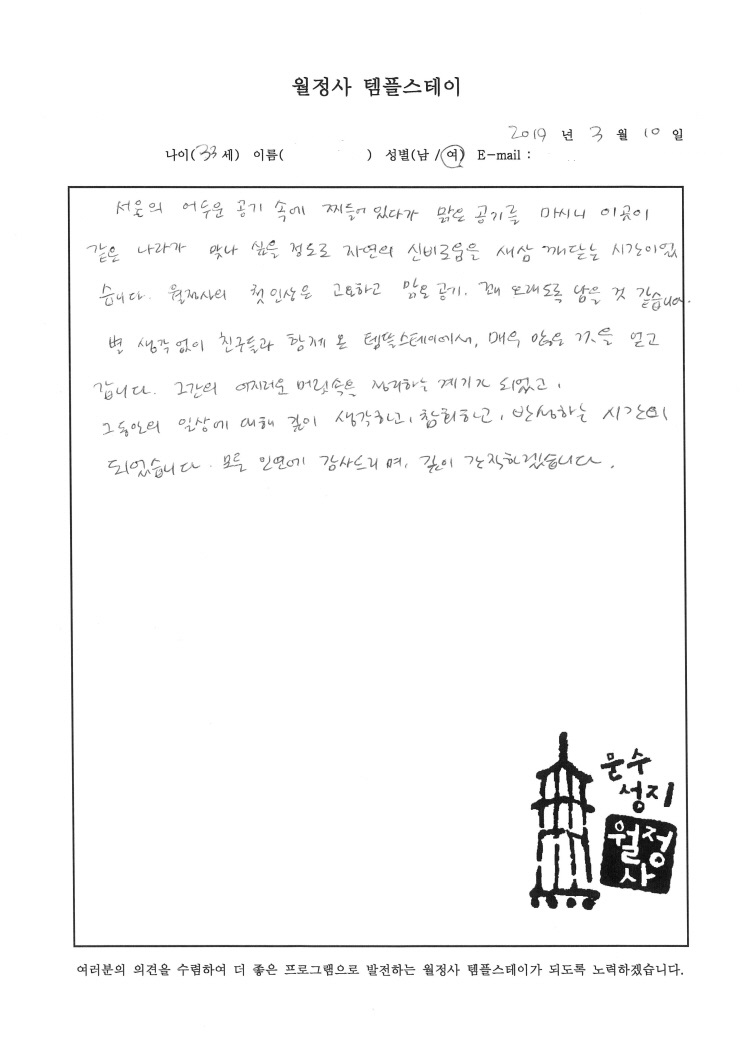 월정사 템플스테이
2019 년 3 월 10 일
나이(33세) 이름( ) 성별(남 /여) E-mail :
서울의 어두운 공기 속에 찌들어 있다가 맑은 공기를 마시니 이곳이
같은 나라가 맞나 싶을 정도로 자연의 신비로움을 새삼 깨닫는 시간이었
습니다. 월정사의 첫인상은 고요하고 맑은 공기. 꽤 오래도록 남을 것 같습니다.
별 생각없이 친구들과 함께 온 템플스테이에서, 매우 많은 것을 얻고
갑니다. 그간의 어지러운 머릿속을 정리하는 계기가 되었고,
그동안의 일상에 대해 깊이 생각하고, 참회하고, 반성하는 시간이
되었습니다. 모든 인연에 감사드리며, 깊이 간직하겠습니다.
문수
성지
월정
사
여러분의 의견을 수렴하여 더 좋은 프로그램으로 발전하는 월정사 템플스테이가 되도록 노력하겠습니다.